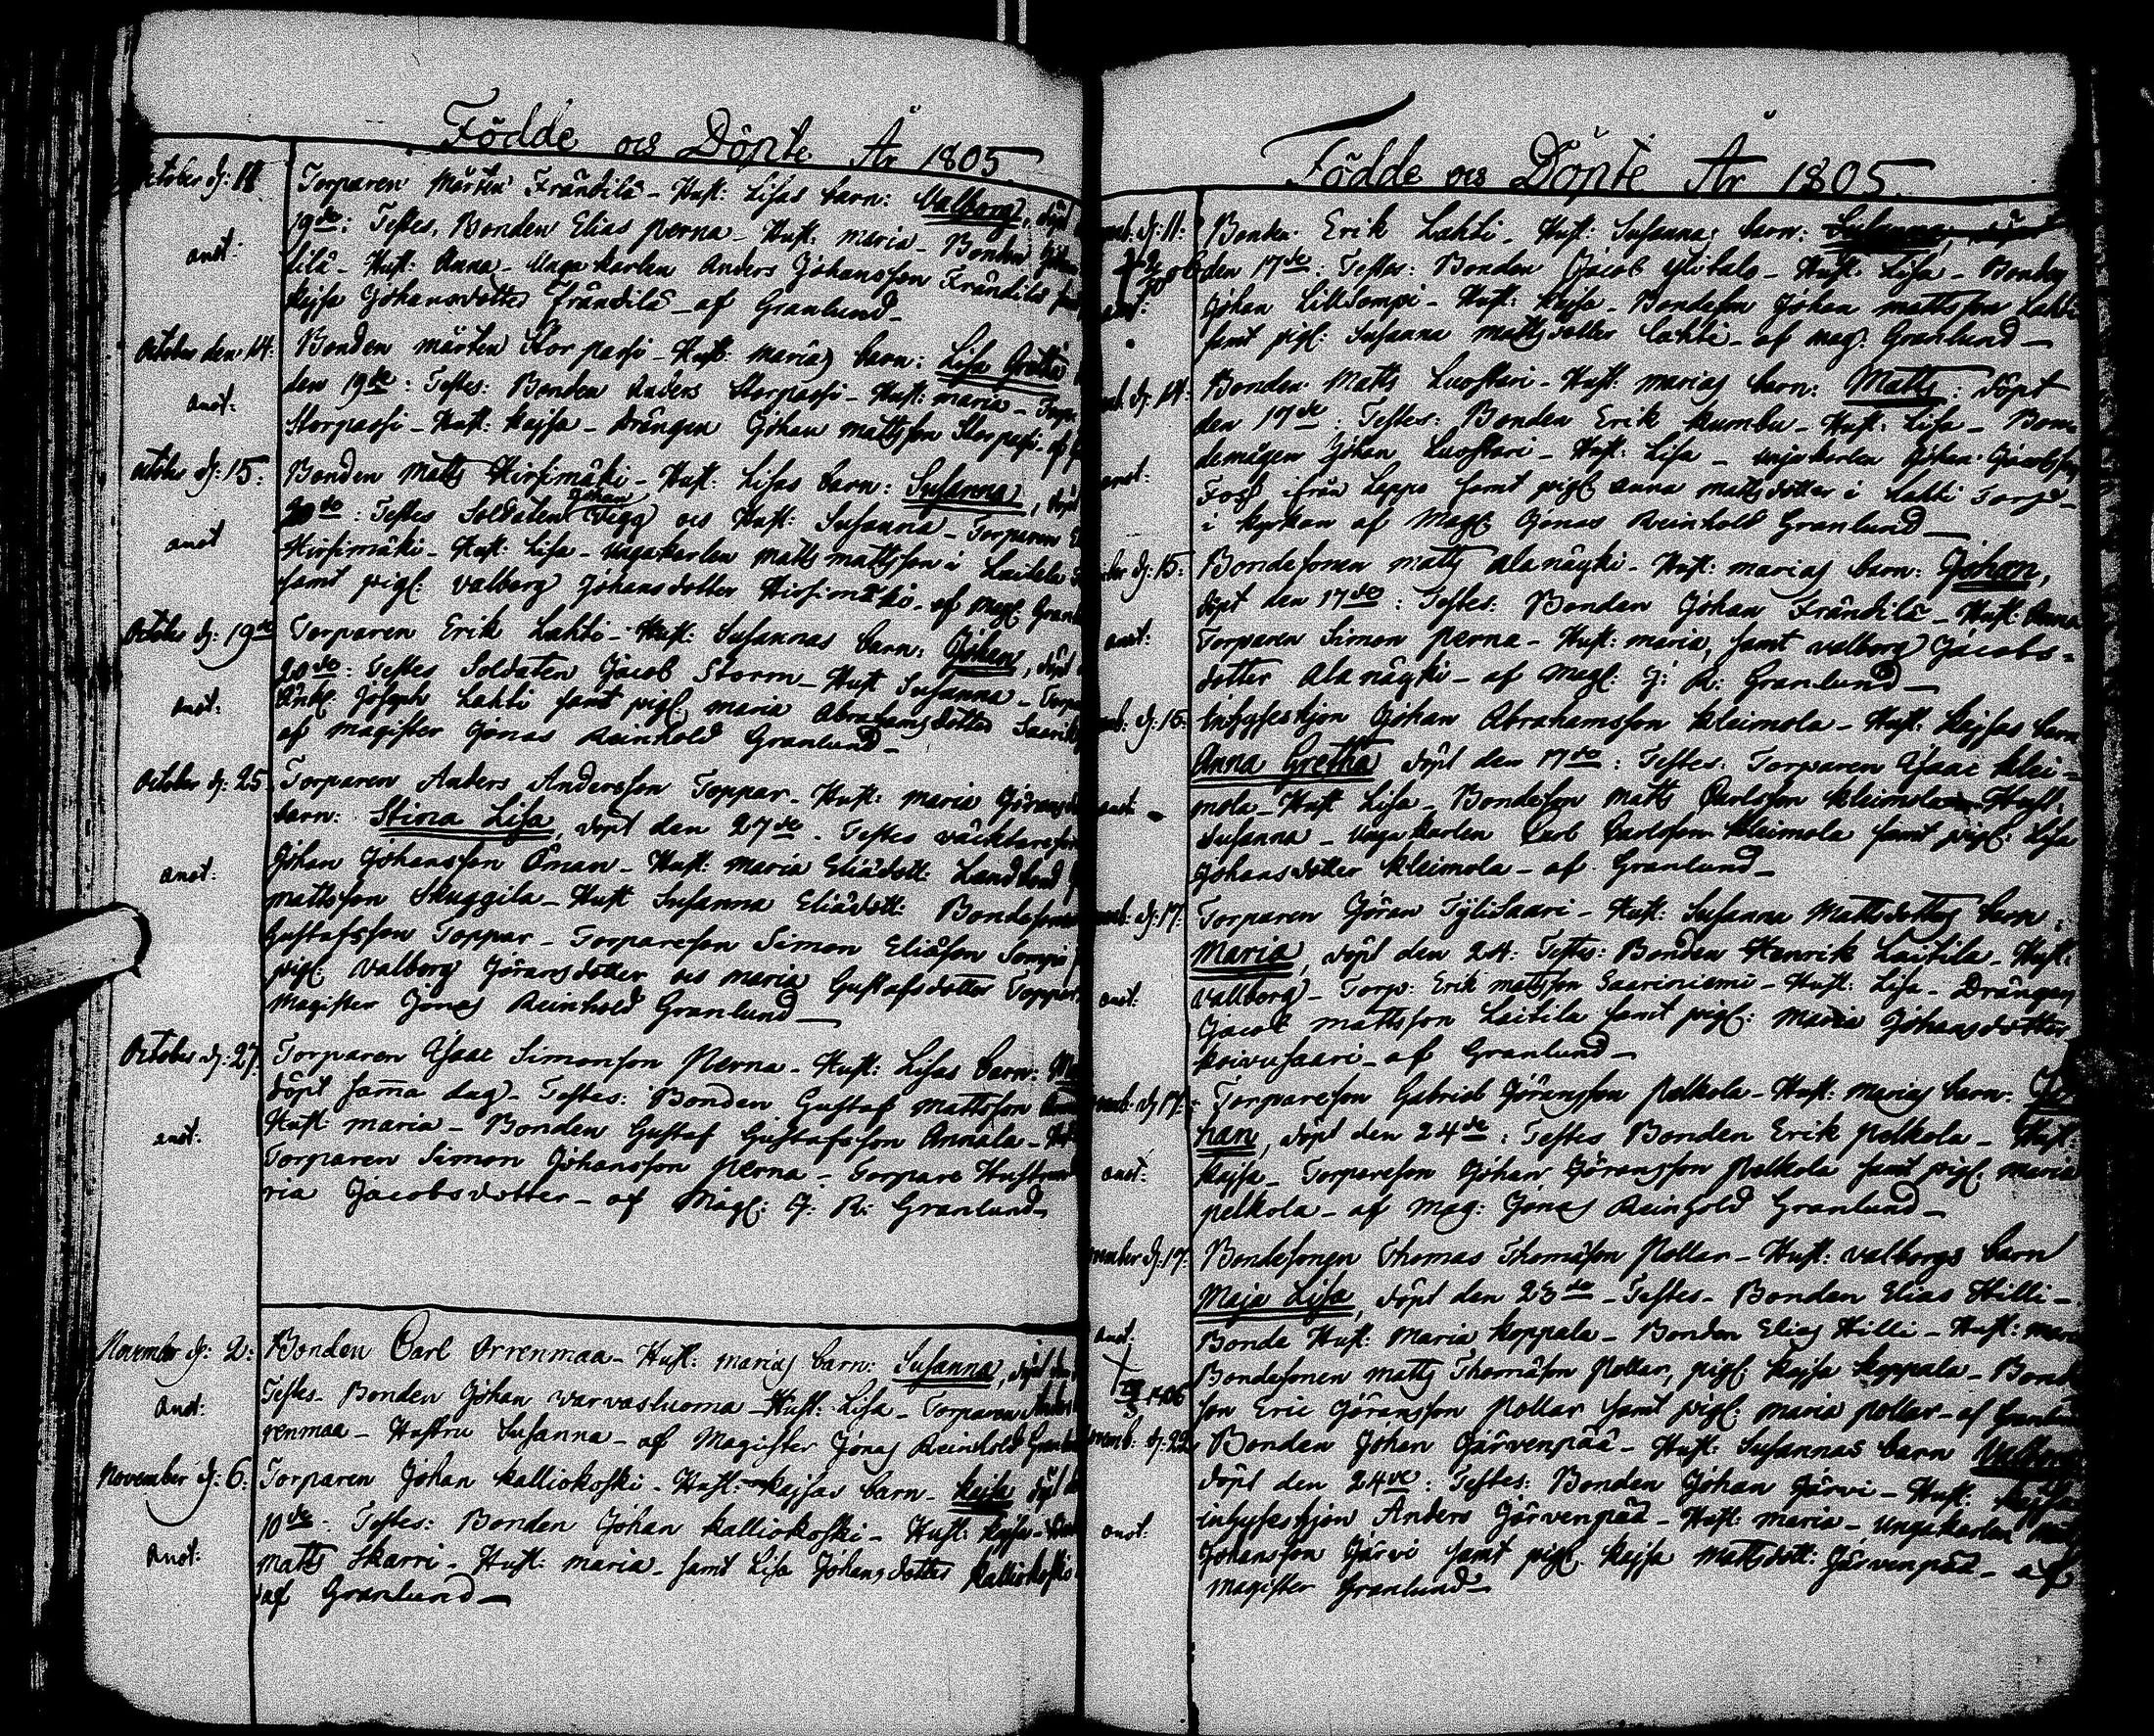 Födde och Döpte År 1805
October d: 11 Torparen Mårten Frändilä - Hust: Lisas barn: Valborg, döpt
19de: Testes, Bonden Elias Perna - Hust: Maria - Bonden
anot: dilä - Hust: Anna - Unga karlen Anders Johansson Frändilä
Kajsa Johansdotter Frändilä - af Granlund
October den 14: Bonden Mårten Storpassi - Hust: Marias barn: Lisa Gretha
den 19de: Testes: Bonden Anders Storpassi - Hust: Maria -
anot: Storpassi - Hust: Kajsa - Drängen Johan Mattsson Storpassi - af
October d: 15: Bonden Matts Hirsimäki - Hust: Lisas barn: Susanna, döpt
20de: Testes Soldaten Johan Tegg och Hust: Susanna - Torparen
anot Hirsimäki - Hust: Lisa - Ungakarlen Matts Mattsson i Laitila
samt pig: Valborg Johansdotter Hirsimäki - af Mag:
October d: 19de Torparen Erik Lahti - Hust: Susannas barn: Johan, döpt
20de: Testes Soldaten Jacob Storm - Hust Susanna -
anot: Joseph Lahti samt pig: Maria Abrahamsdotter
af Magister Jonas Reinhold Granlund
October d: 25 Torparen Anders Andersson Toppar - Hust: Maria
barn: Stina Lisa, döpt den 27de. Testes
Johan Johansson Öman - Hust: Maria Eliædott:
anot: Mattsson Skuggila - Hust Susanna Eliædott: Bondesonen
Gustafsson Toppar - Torpareson Simon Eliæson
pig: Valborg Jöransdotter och Maria Gustafsdotter Toppar
Magister Jonas Reinhold Granlund
October d: 27 Torparen Isaac Simonsson Perna - Hust: Lisas barn:
döpt samma dag - Testes: Bonden Gustaf Mattsson
anot: Hust: Maria - Bonden Gustaf Gustafsson Annala -
Torparen Simon Johansson Perna - Torpare Hustrun
ria Jacobsdotter - af Mag: J: R: Granlund
November d: 2: Bonden Carl Orrenmaa - Hust: Marias barn: Susanna, döpt
Anot: Testes - Bonden Johan Varvasluoma - Hust: Lisa - Torparen
renmaa - Hustru Susanna - af Magister Jonas Reinhold
November d: 6: Torparen Johan Kalliokoski - Hust: Kajsas barn - Kajsa döpt
10de: Testes: Bonden Johan Kalliokoski - Hust: Kajsa -
Anot: Matts Skarri - Hust: Maria - samt Lisa Johansdotter Kalliokoski
af Granlund
Födde och Döpte År 1805
d: 11: Bonden Erik Lahti - Hust: Susannas barn: Susanna,
den 17de: Testes: Bonden Jacob Ylitalo - Hust: Lisa - Bonden
Johan Lillsompi - Hust: Kajsa - Bondeson Johan Mattsson Lahti
samt pig: Susanna Mattsdotter Lahti - af Mag: Granlund
d: 14: Bonden Matts Luostari - Hust: Marias barn: Matts: döpt
den 17de: Testes: Bonden Erik Kumbu - Hust: Lisa - Bon-
demågen Johan Luostari - Hust: Lisa - Ungakarlen Johan
anot: ifrån Leppo samt pig: Anna Mattsdotter i Lahti
i Kyrkan af Mag: Jonas Reinhold Granlund
d: 15: Bondesonen Matts Alanäyki - Hust: Marias barn: Johan,
döpt den 17de: Testes: Bonden Johan Frändilä - Hust: Anna
anot: Torparen Simon Perna - Hust: Maria, samt Valborg Jacobs-
dotter Alanäyki - af Mag: J: R: Granlund
d: 16: Inhyseshjon Johan Abrahamsson Kleimola - Hust: Kajsas barn
Anna Gretha döpt den 17de: Testes: Torparen Isaac Klei-
anot: mola - Hust Lisa - Bondeson Matts Carlsson Kleimola Hust:
Susanna - Ungakarlen Carl Carlsson Kleimola samt pig: Lisa
Johansdotter Kleimola - af Granlund
d: 17: Torparen Jöran Sylisaari - Hust: Susanna Mattsdotters barn:
Maria, döpt den 24: Testes: Bonden Henrik Laitila - Hust:
anot: Vallborg - Torp: Erik Mattsson Saariniemi - Hust: Lisa - Drängen
Jacob Mattsson Laitila samt pig: Maria Johansdotter
Koivusaari - af Granlund
d: 17: Torpareson Gabriel Jöransson Pelkola - Hust: Marias barn: Jo-
han, döpt den 24de: Testes Bonden Erik Pelkola - Hust:
anot: Kajsa - Torpareson Johan Jöransson Pelkola samt pig: Maria
Pelkola - af Mag: Jonas Reinhold Granlund
November d: 17: Bondesonen Thomas Thomæson Pollar - Hust: Valborgs barn
Maja Lisa, döpt den 23de - Testes - Bonden Elias Hilli -
anot: Bonde Hust: Maria Koppala - Bonden Elias Hilli - Hust:
Bondesonen Matts Thomæson Pollar, pig: Kajsa Koppala -
son Eric Jöransson Pollar samt pig: Maria Pollar - af
d: 22 Bonden Johan Järvenpää - Hust: Susannas barn Valborg
döpt den 24de: Testes: Bonden Johan Järvi - Hust: Kajsa
anot: inhyseshjon Anders Järvenpää - Hust: Maria - Ungakarlen
Johansson Järvi samt pig: Kajsa Mattsdott: Järvenpää - af
Magister Granlund